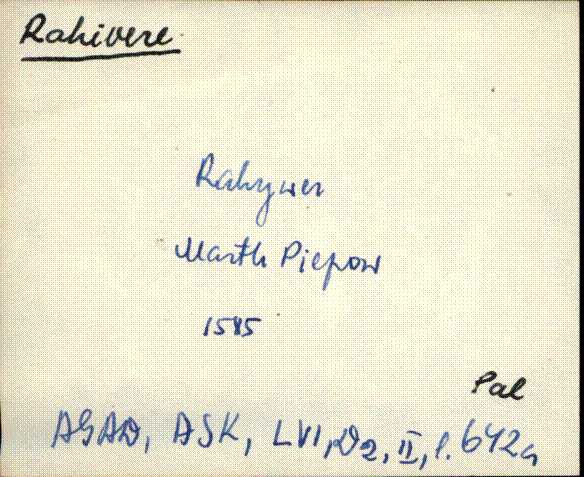 Rahivere
Rahywer
Marth Piepow
1585
Pal
AGAD, ASK, LVI, D2, II, l. 642a